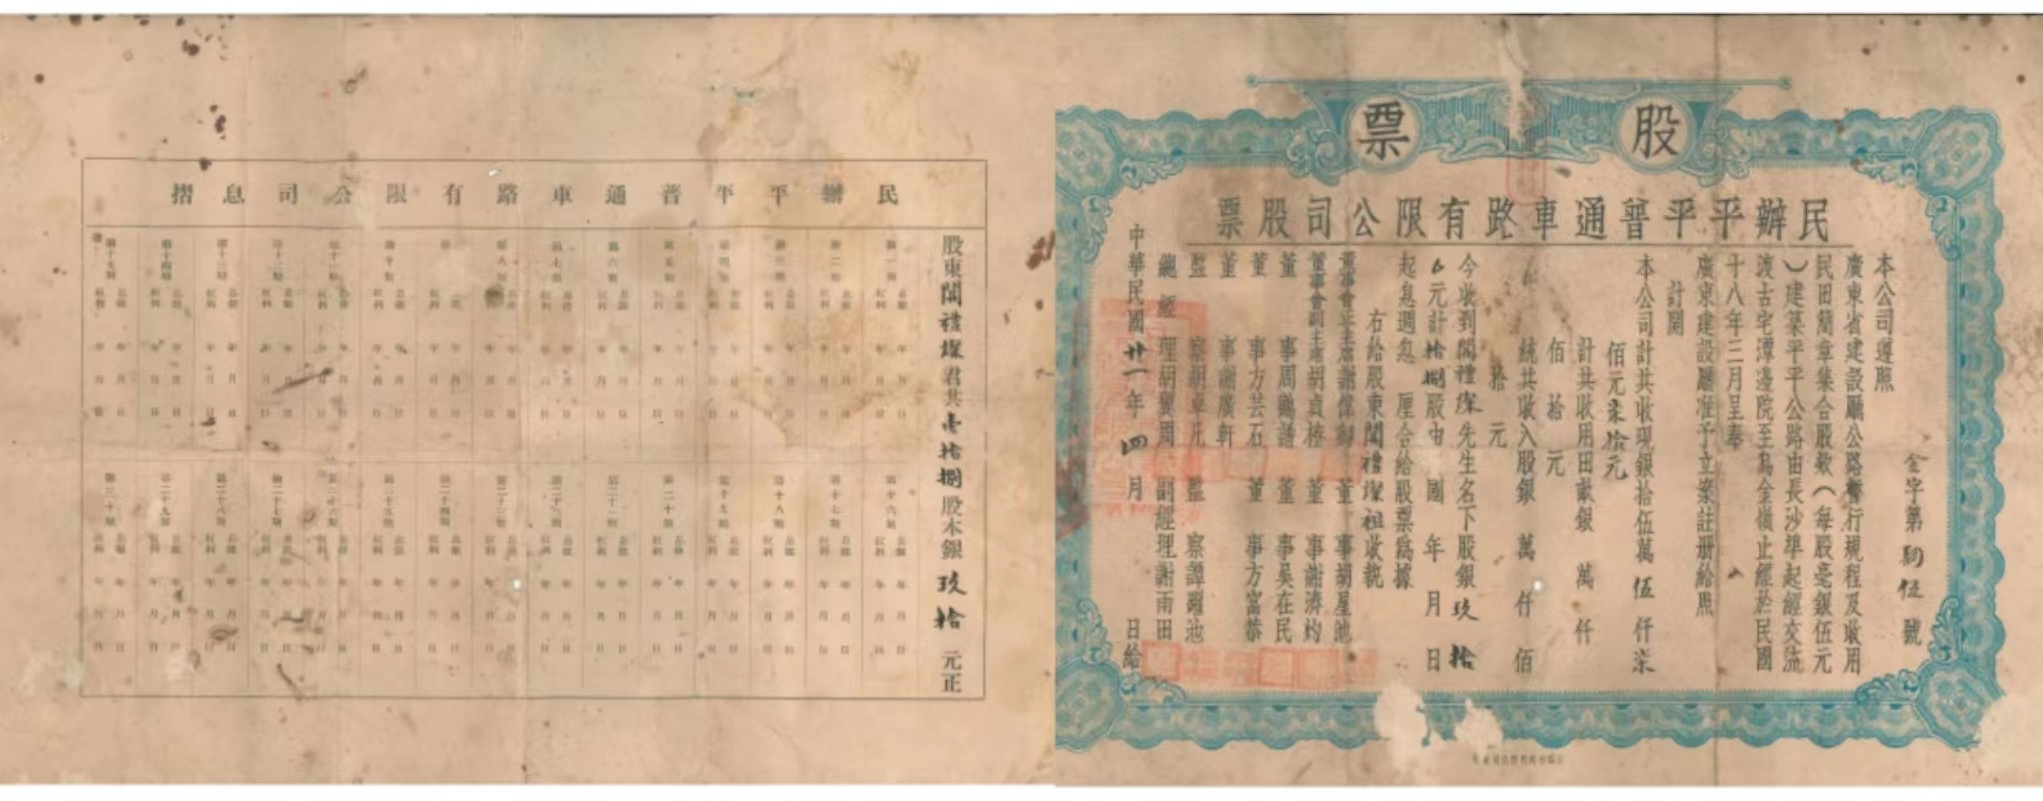 股票
民辦平平普通車路有限公司股票
金字第 伍 號
本公司遵照
廣東省建設廳公路暫行規程及收用
民田簡章集合股款(每股毫銀伍元
)建築平平公路由長沙準起經交流
渡古宅潭邊院至烏金嶺止經於民國
十八年三月呈奉
廣東建設廳准予立案註冊給照
計開
本公司計共收現銀拾伍萬伍仟柒
佰元柒拾元
計共收用田畝銀 萬 仟
佰 拾 元
統共收入股銀 萬 仟 佰
拾 元
今收到 禮 先生名下股銀玖拾
元計拾捌股由 國 年 月 日
起息週息 厘合給股票為據
右給股東 禮 祖收執
董事會正主席謝偉卿 董事胡星池
董事會副主席胡貞椿 董事謝濟灼
董事周鶴講 董事吳在民
董事方芸石 董事方富恭
董事謝廣軒
監察胡卓凡 監察譚躍池
總經理胡巽周 副經理謝雨田
中華民國廿一年四月 日給
民辦平平普通車路有限公司息摺
股東 禮 君共壹拾捌股本銀玖拾元正
第一期 息銀 紅利 年 月 日
第二期 息銀 紅利 年 月 日
第三期 息銀 紅利 年 月 日
第四期 息銀 紅利 年 月 日
第五期 息銀 紅利 年 月 日
第六期 息銀 紅利 年 月 日
第七期 息銀 紅利 年 月 日
第八期 息銀 紅利 年 月 日
第十期 息銀 紅利 年 月 日
第十一期 息銀 紅利 年 月 日
第十二期 息銀 紅利 年 月 日
第十三期 息銀 紅利 年 月 日
第十四期 息銀 紅利 年 月 日
第十五期 息銀 紅利 年 月 日
第十六期 息銀 紅利 年 月 日
第十七期 息銀 紅利 年 月 日
第十八期 息銀 紅利 年 月 日
第十九期 息銀 紅利 年 月 日
第二十期 息銀 紅利 年 月 日
第二十一期 息銀 紅利 年 月 日
第二十二期 息銀 紅利 年 月 日
第二十三期 息銀 紅利 年 月 日
第二十四期 息銀 紅利 年 月 日
第二十五期 息銀 紅利 年 月 日
第二十六期 息銀 紅利 年 月 日
第二十七期 息銀 紅利 年 月 日
第二十八期 息銀 紅利 年 月 日
第二十九期 息銀 紅利 年 月 日
第三十期 息銀 紅利 年 月 日